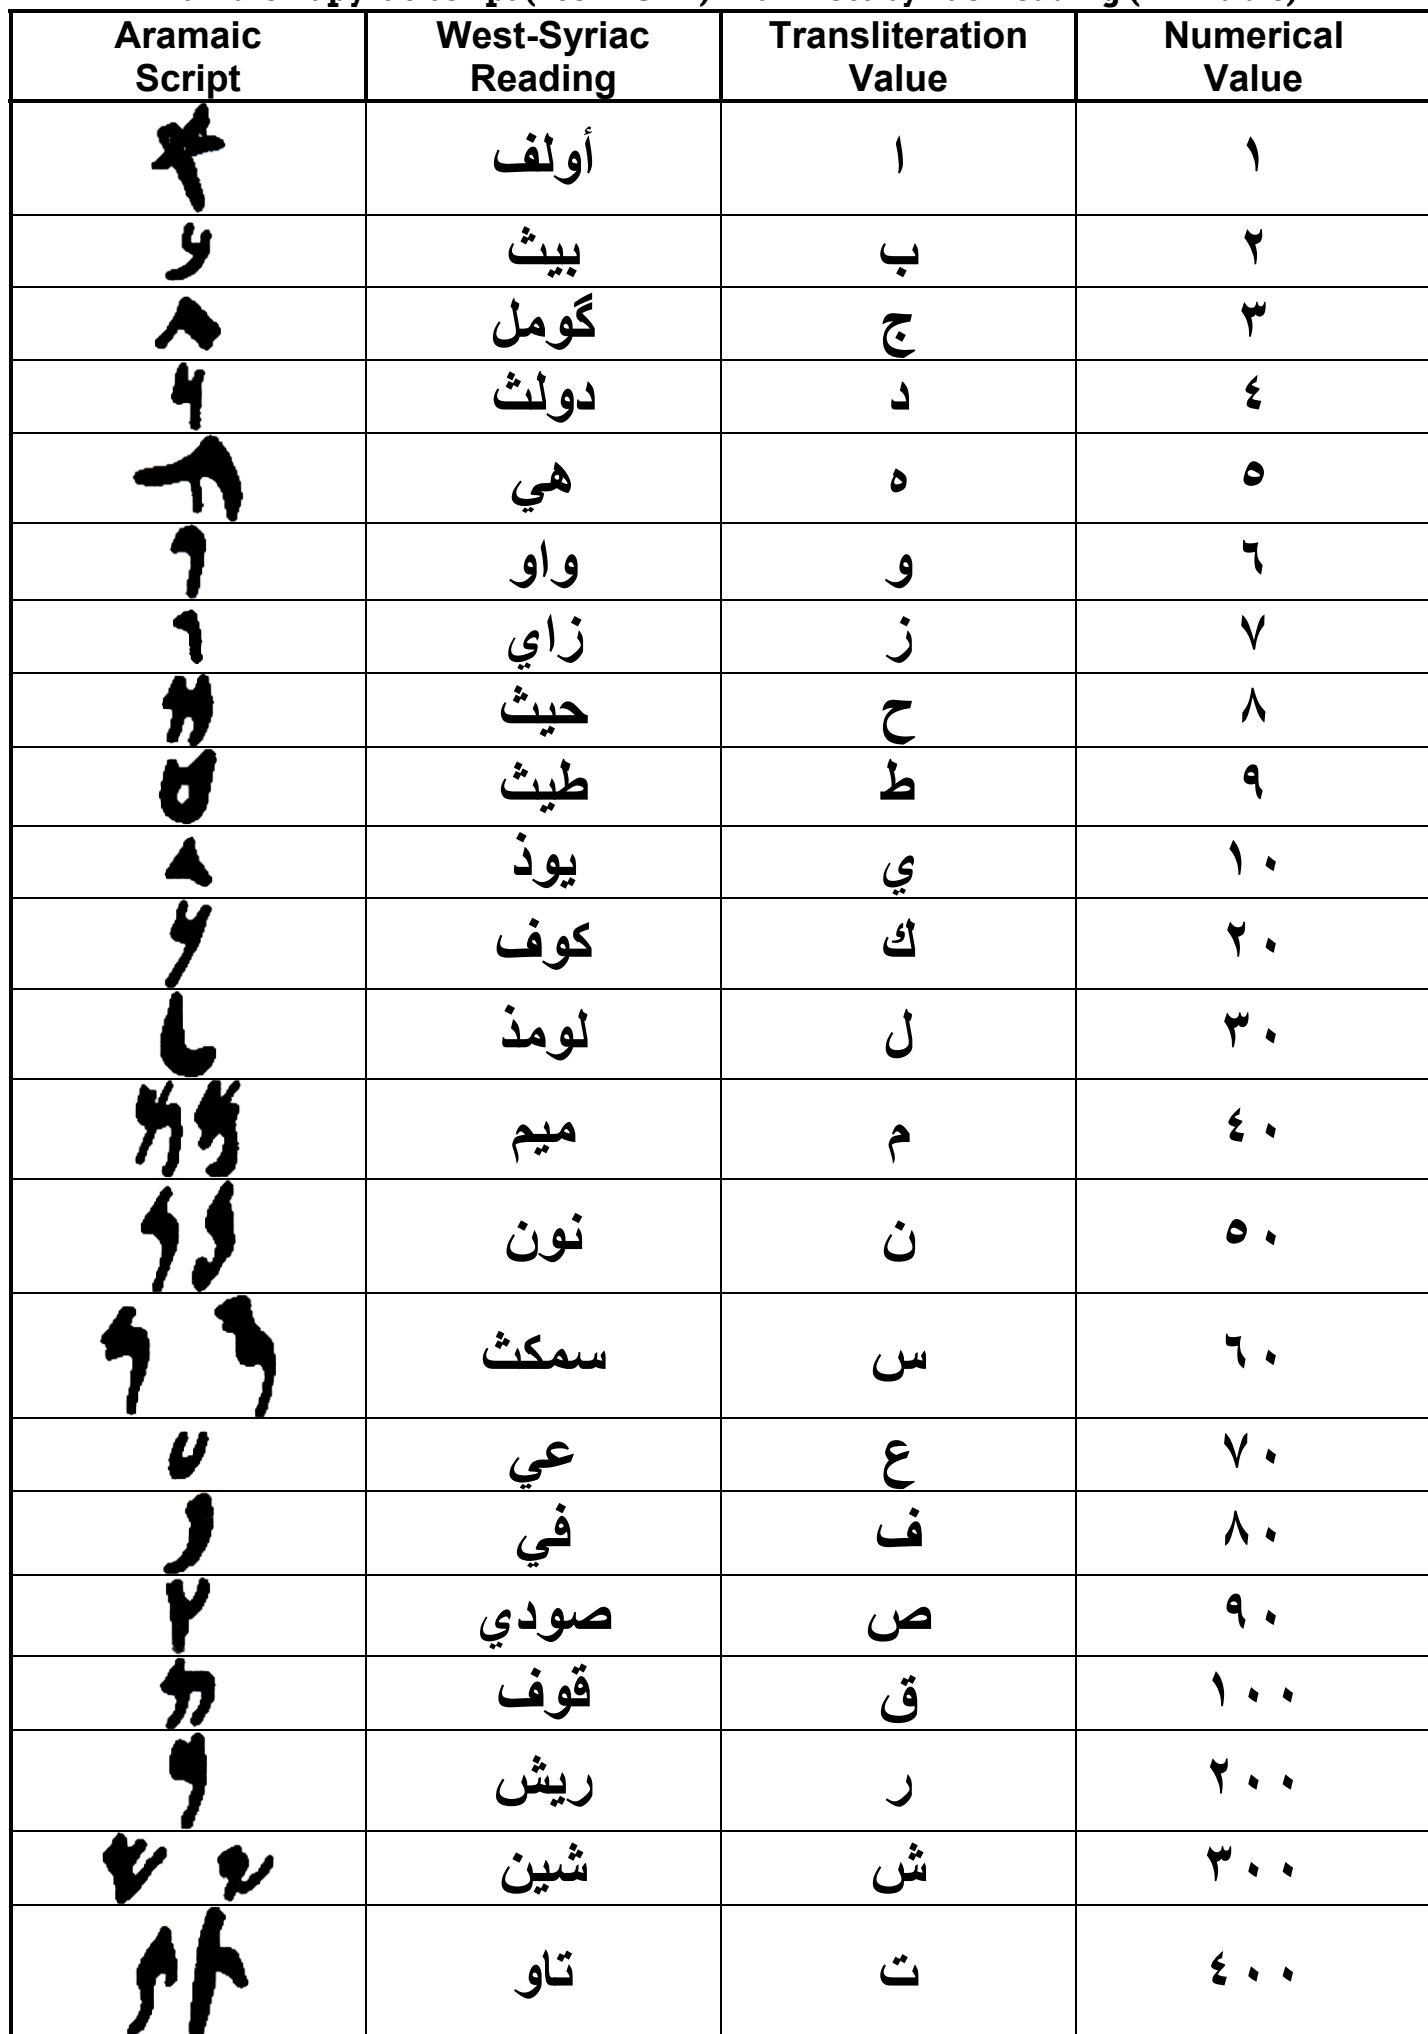 Aramaic Script | West-Syriac Reading | Transliteration Value | Numerical Value
أولف | ا | ١
بيث | ب | ٢
گومل | ج | ٣
دولث | د | ٤
هي | ه | ٥
واو | و | ٦
زاي | ز | ٧
حيث | ح | ٨
طيث | ط | ٩
يوذ | ي | ١٠
كوف | ك | ٢٠
لومذ | ل | ٣٠
ميم | م | ٤٠
نون | ن | ٥٠
سمكث | س | ٦٠
عي | ع | ٧٠
في | ف | ٨٠
صودي | ص | ٩٠
قوف | ق | ١٠٠
ريش | ر | ٢٠٠
شين | ش | ٣٠٠
تاو | ت | ٤٠٠